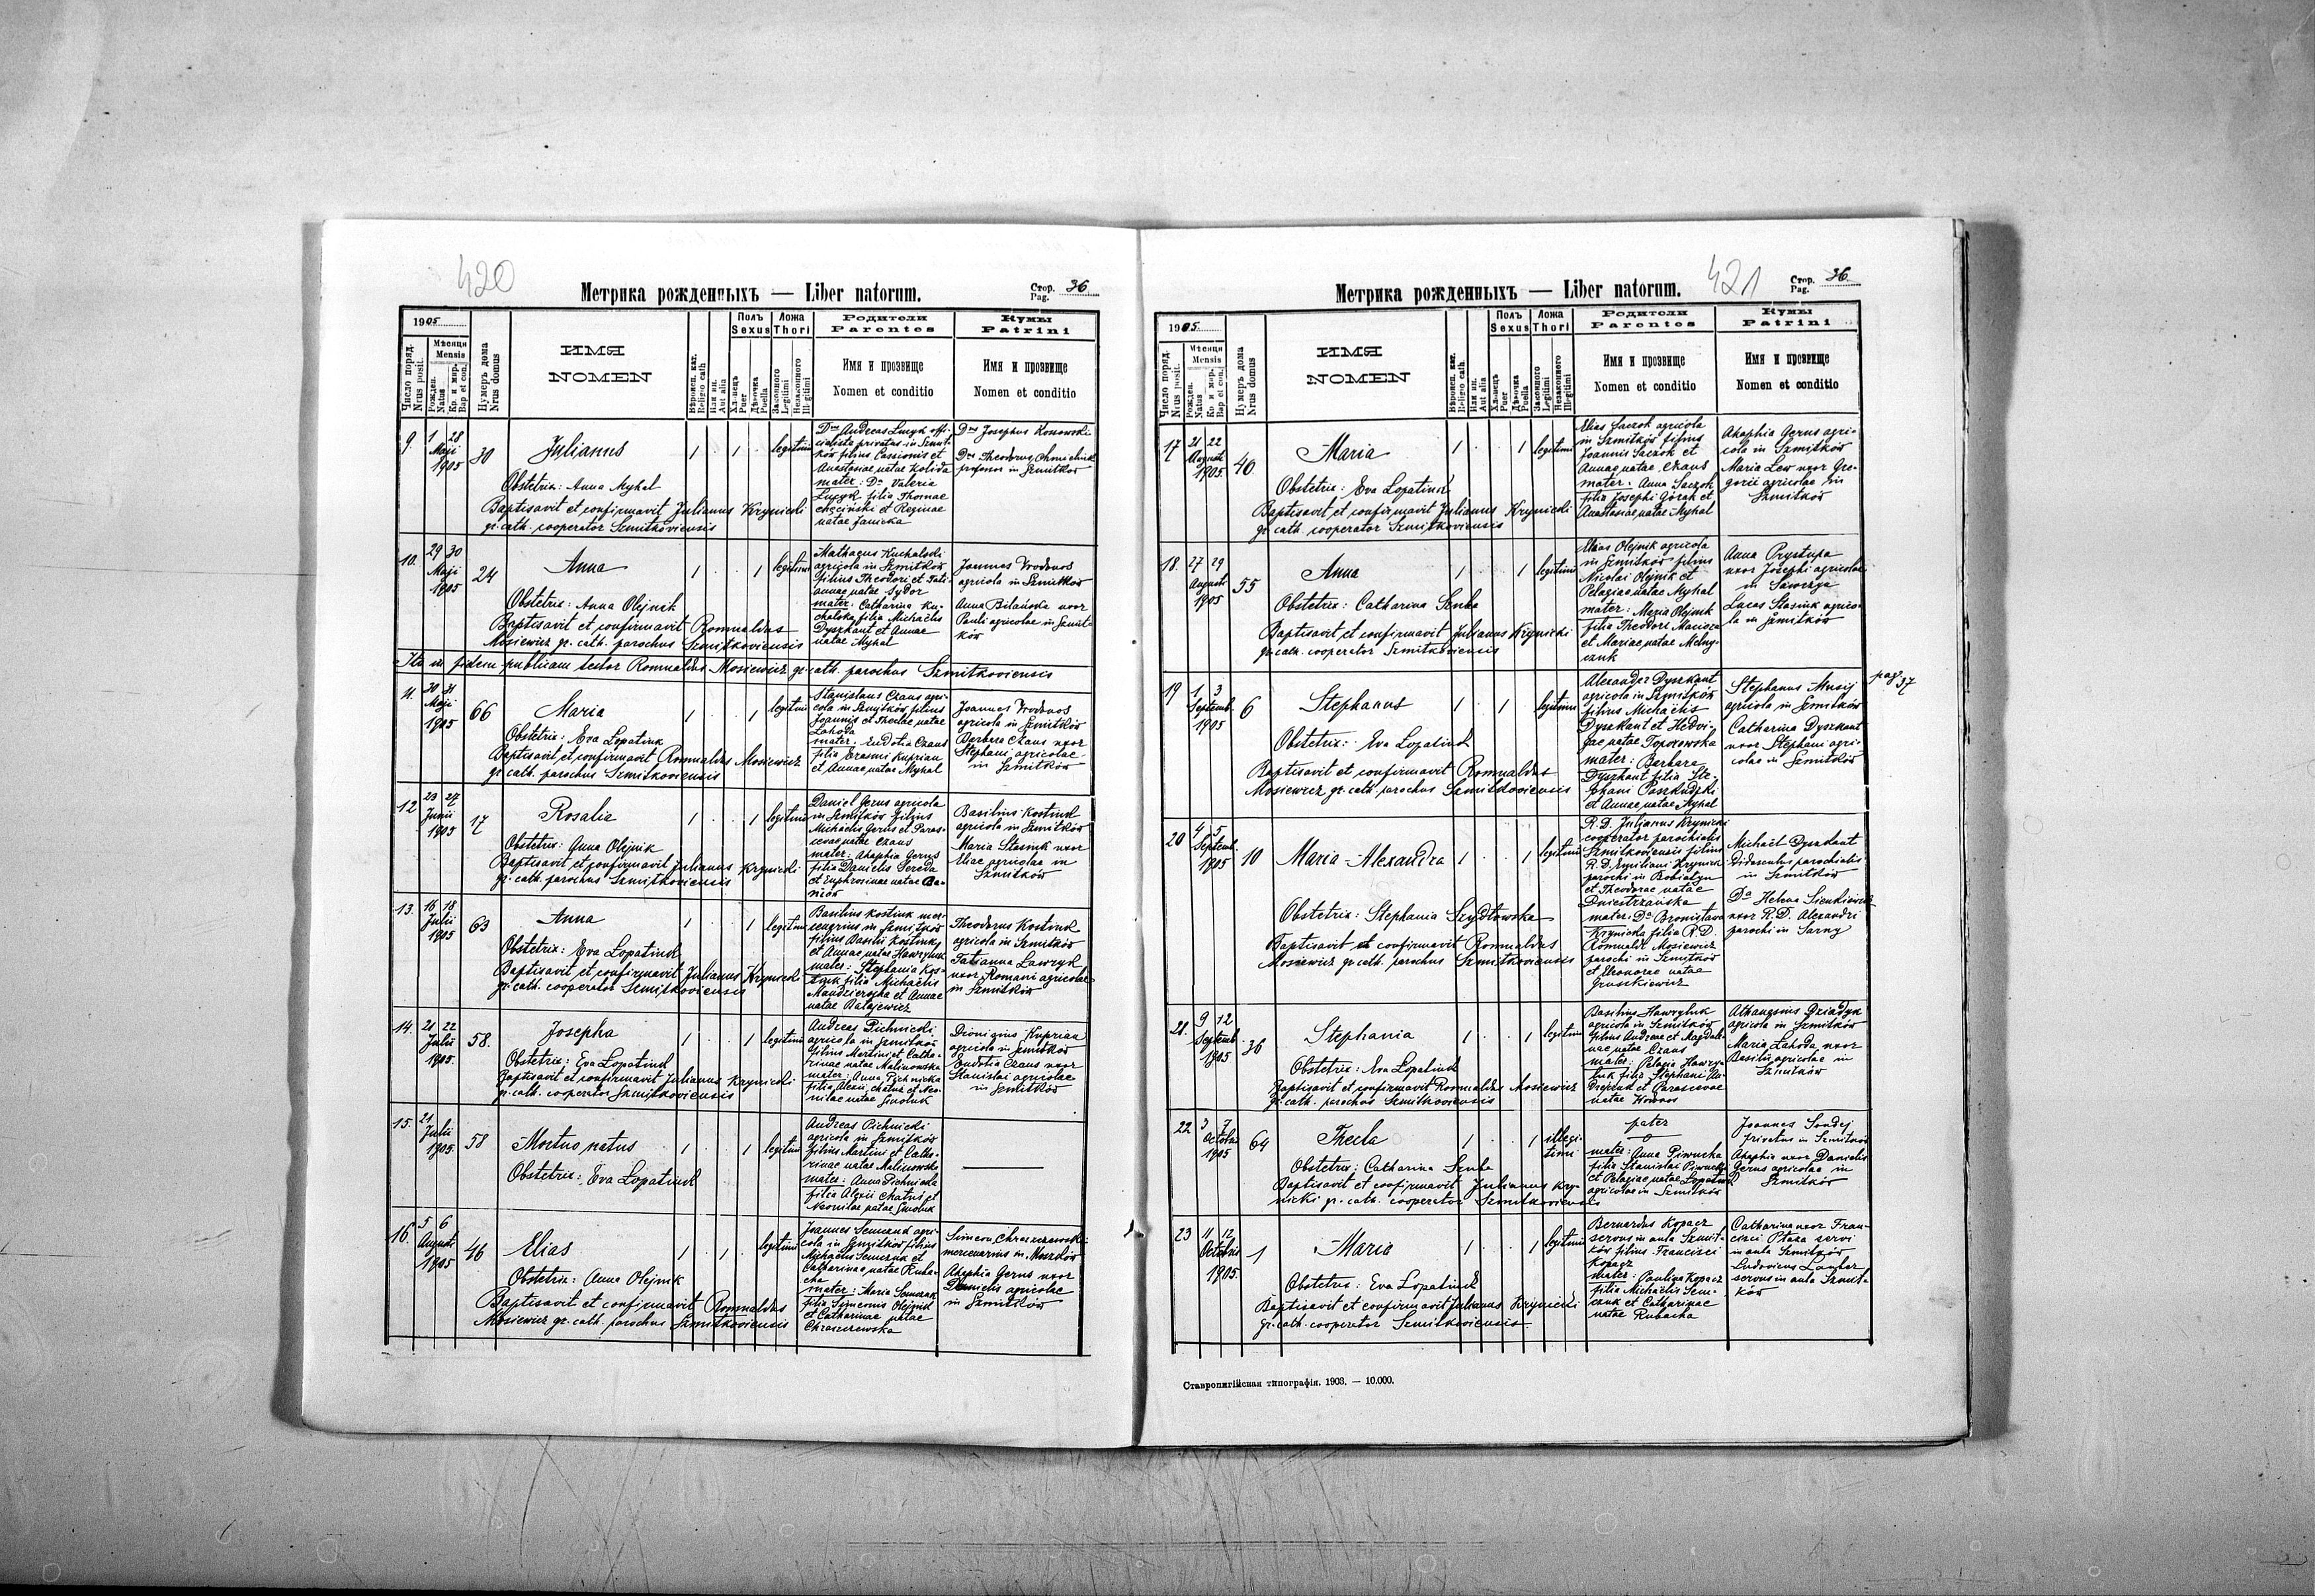 420
Метрика рожденныхъ — Liber natorum.
Стор. Pag. 36
1905
Число поряд. Nrus posit.
Мѣсяця Mensis
Рожден. Natus
Кр. и мир. Bap et con.
Нумеръ дома Nrus domus
ИМЯ
NOMEN
Вѣроисп. кат. Religio cath
Или ин. Aut alia
Полъ Sexus
Хлопецъ Puer
Дѣвочка Puella
Ложа Thori
Законного Legitimi
Незаконного Illegitimi
Родители
Parentes
Имя и прозвище
Nomen et conditio
Кумы
Patrini
Имя и прозвище
Nomen et conditio
9. 1 28 Maji 1905 30 Julianus 1 . 1 . legitimi
Obstetrix: Anna Myhal
Baptisavit et confirmavit Julianus Krynicki
gr. cath. cooperator Szmitkoviensis
Dnus Andreas Luzyk offi-
cialista privatus in Szmit-
ków filius Cassionis et
Anastasiae natae Kolida
mater: Da Valeria
Luzyk filia Thomae
Chęciński et Reginae
natae Janicka
Dnus Josephus Kossowski
Dnus Theodorus Chmielnik
profesor in Szmitków
10. 29 30 Maji 1905 24 Anna 1 . . 1 legitimi
Obstetrix: Anna Olejnik
Baptisavit et confirmavit Romualdus
Mosiewicz gr. cath. parochus Szmitkoviensis
Mathaeus Kuchalski
agricola in Szmitków
filius Theodori et Tati-
annae natae Sydor
mater: Catharina Ku-
chalska filia Michaëlis
Dyszkant et Annae
natae Myhal
Joannes Wodonos
agricola in Szmitków
Anna Bilańska uxor
Pauli agricolae in Szmit-
ków
Ita in fidem publicam testor Romualdus Mosiewicz gr. cath. parochus Szmitkoviensis
11. 30 31 Maji 1905 66 Maria 1 . . 1 legitimi
Obstetrix: Eva Lopatiuk
Baptisavit et confirmavit Romualdus Mosiewicz
gr. cath. parochus Szmitkoviensis
Stanislaus Czaus agri-
cola in Szmitków filius
Joannis et Theclae natae
Lahoda
mater: Eudotia Czaus
filia Erasmi Kuprian
et Annae natae Myhal
Joannes Wodonos
agricola in Szmitków
Barbara Czaus uxor
Stephani agricolae
in Szmitków
12 23 27 Junii 1905 17 Rosalia 1 . . 1 legitimi
Obstetrix: Anna Olejnik
Baptisavit et confirmavit Julianus Krynicki
gr. cath. parochus Szmitkoviensis
Daniel Gerus agricola
in Szmitków filius
Michaëlis Gerus et Paras-
cevae natae Czaus
mater: Ahaphia Gerus
filia Danielis Sereda
et Euphrosinae natae Ba-
niów
Basilius Kostiuk
agricola in Szmitków
Maria Stasiuk uxor
Eliae agricolae in
Szmitków
13. 16 18 Julii 1905 63 Anna 1 . . 1 legitimi
Obstetrix: Eva Lopatiuk
Baptisavit et confirmavit Julianus Krynicki
gr. cath. cooperator Szmitkoviensis
Basilius Kostiuk mer-
cenarius in Szmitków
filius Basilii Kostiuk
et Annae natae Hawryluk
mater: Stephania Kos-
tiuk filia Michaëlis
Mandzierocha et Annae
natae Bełajewicz
Theodorus Kostiuk
agricola in Szmitków
Tatianna Lawryk
uxor Romani agricolae
in Szmitków
14. 21 22 Julii 1905. 58. Josepha 1 . . 1 legitimi
Obstetrix: Eva Lopatiuk
Baptisavit et confirmavit Julianus Krynicki
gr. cath. cooperator Szmitkoviensis
Andreas Pichnicki
agricola in Szmitków
filius Martini et Catha-
rinae natae Malinowska
mater: Anna Pichnicka
filia Alexii Chatus et Neo-
nilae natae Smoluk
Dionizius Kuprian
agricola in Szmitków
Eudotia Czaus uxor
Stanislai agricolae
in Szmitków
15. 21 Julii 1905. 58 Mortuo natus 1 . . 1 legitimi
Obstetrix: Eva Lopatiuk
Andreas Pichnicki
agricola in Szmitków
filius Martini et Catha-
rinae natae Malinowska
mater: Anna Pichnicka
filia Alexii Chatus et
Neonilae natae Smoluk
16. 5 6 Augusti 1905 46 Elias 1 . 1 . legitimi
Obstetrix: Anna Olejnik
Baptisavit et confirmavit Romualdus
Mosiewicz gr. cath. parochus Szmitkoviensis
Joannes Semczuk agri-
cola in Szmitków filius
Michaëlis Semczuk et
Catharinae natae Ruba-
cha
mater: Maria Semczuk
filia Simeonis Olejnik
et Catharinae natae
Chraszczewska
Simeon Chraszczewski
mercenarius in Moszków
Ahaphia Gerus uxor
Danielis agricolae
in Szmitków
421
Метрика рожденныхъ — Liber natorum.
Стор. Pag. 36
1905
Число поряд. Nrus posit.
Мѣсяця Mensis
Рожден. Natus
Кр. и мир. Bap et con.
Нумеръ дома Nrus domus
ИМЯ
NOMEN
Вѣроисп. кат. Religio cath.
Или ин. Aut alia
Полъ Sexus
Хлопецъ Puer
Дѣвочка Puella
Ложа Thori
Законного Legitimi
Незаконного Illegitimi
Родители
Parentes
Имя и прозвище
Nomen et conditio
Кумы
Patrini
Имя и прозвище
Nomen et conditio
17 21 22 Augusti 1905. 40 Maria 1 . . 1 legitimi
Obstetrix: Eva Lopatiuk
Baptisavit et confirmavit Julianus Krynicki
gr. cath. cooperator Szmitkoviensis
Elias Saczok agricola
in Szmitków filius
Joannis Saczok et
Annae natae Czaus
mater: Anna Saczok
filia Josephi Górah et
Anastasiae natae Myhal
Ahaphia Gerus agri-
cola in Szmitków
Maria Lew uxor Gre-
gorii agricolae in
Szmitków
18. 27 29 Augusti 1905 55 Anna 1 . . 1 legitimi
Obstetrix: Catharina Szuba
Baptisavit et confirmavit Julianus Krynicki
gr. cath. cooperator Szmitkoviensis
Elias Olejnik agricola
in Szmitków filius
Nicolai Olejnik et
Pelagiae natae Myhal
mater: Maria Olejnik
filia Theodori Maciora
et Mariae natae Melny-
czuk
Anna Prystupa
uxor Josephi agricolae
in Sawczyn
Lucas Stasiuk agrico-
la in Szmitków
19 1 3 Septemb. 1905 6 Stephanus 1 . 1 . legitimi
Obstetrix: Eva Lopatiuk
Baptisavit et confirmavit Romualdus
Mosiewicz gr. cath. parochus Szmitkoviensis
Alexander Dyszkant
agricola in Szmitków
filius Michaëlis
Dyszkant et Hedvi-
gae natae Toporowska
mater: Barbara
Dyszkant filia Ste-
phani Paszkudzki
et Annae natae Myhal
Stephanus Musij
agricola in Szmitków
Catharina Dyszkant
uxor Stephani agri-
colae in Szmitków
pag 37
20 4 5 Septemb. 1905 10 Maria-Alexandra 1 . . 1 legitimi
Obstetrix: Stephania Szydłowska
Baptisavit et confirmavit Romualdus
Mosiewicz gr. cath. parochus Szmitkoviensis
R.D. Julianus Krynicki
cooperator parochialis
Szmitkoviensis filius
R.D. Emiliani Krynicki
parochi in Bobiatyn
et Theodorae natae
Dniestrzańska
mater: Da Bronisława
Krynicka filia R.D.
Romualdi Mosiewicz
parochi in Szmitków
et Eleonorae natae
Gruszkiewicz
Michaël Dyszkant
Didascalus parochialis
in Szmitków
Da Helena Sienkiewicz
uxor R.D. Alexandri
parochi in Sarny
21. 9 12 Septemb. 1905 36 Stephania 1 . . 1 legitimi
Obstetrix: Eva Lopatiuk
Baptisavit et confirmavit Romualdus Mosiewicz
gr. cath. parochus Szmitkoviensis
Basilius Hawryluk
agricola in Szmitków
filius Andreae et Magdale-
nae natae Czaus
mater: Pelagia Hawry-
luk filia Stephani An-
drejuk et Parascevae
natae Wodonos
Athanasius Dziadyk
agricola in Szmitków
Maria Lahoda uxor
Basilii agricolae in
Szmitków
22 3 7 Octobris 1905 64 Thecla 1 . . 1 illegi-
timi
Obstetrix: Catharina Szuba
Baptisavit et confirmavit Julianus Kry-
nicki gr. cath. cooperator Szmitkoviensis
pater
0
mater: Anna Piwucha
filia Stanislai Piwucha
et Pelagiae natae Lopatiuk
agricolae in Szmitków
Joannes Sondej
privatus in Szmitków
Ahaphia uxor Danielis
Gerus agricolae in
Szmitków
23 11 12 Octobris 1905. 1 Maria 1 . . 1 legitimi
Obstetrix: Eva Lopatiuk
Baptisavit et confirmavit Julianus Krynicki
gr. cath. cooperator Szmitkoviensis
Bernardus Kopacz
servus in aula Szmit-
ków filius Francisci
Kopacz
mater: Paulina Kopacz
filia Michaëlis Sem-
czuk et Catharinae
natae Rubacha
Catharina uxor Fran-
cisci Ptaza servi
in aula Szmitków
Ludovicus
servus in aula Szmit-
ków
Ставропигійская типографія. 1903. — 10.000.